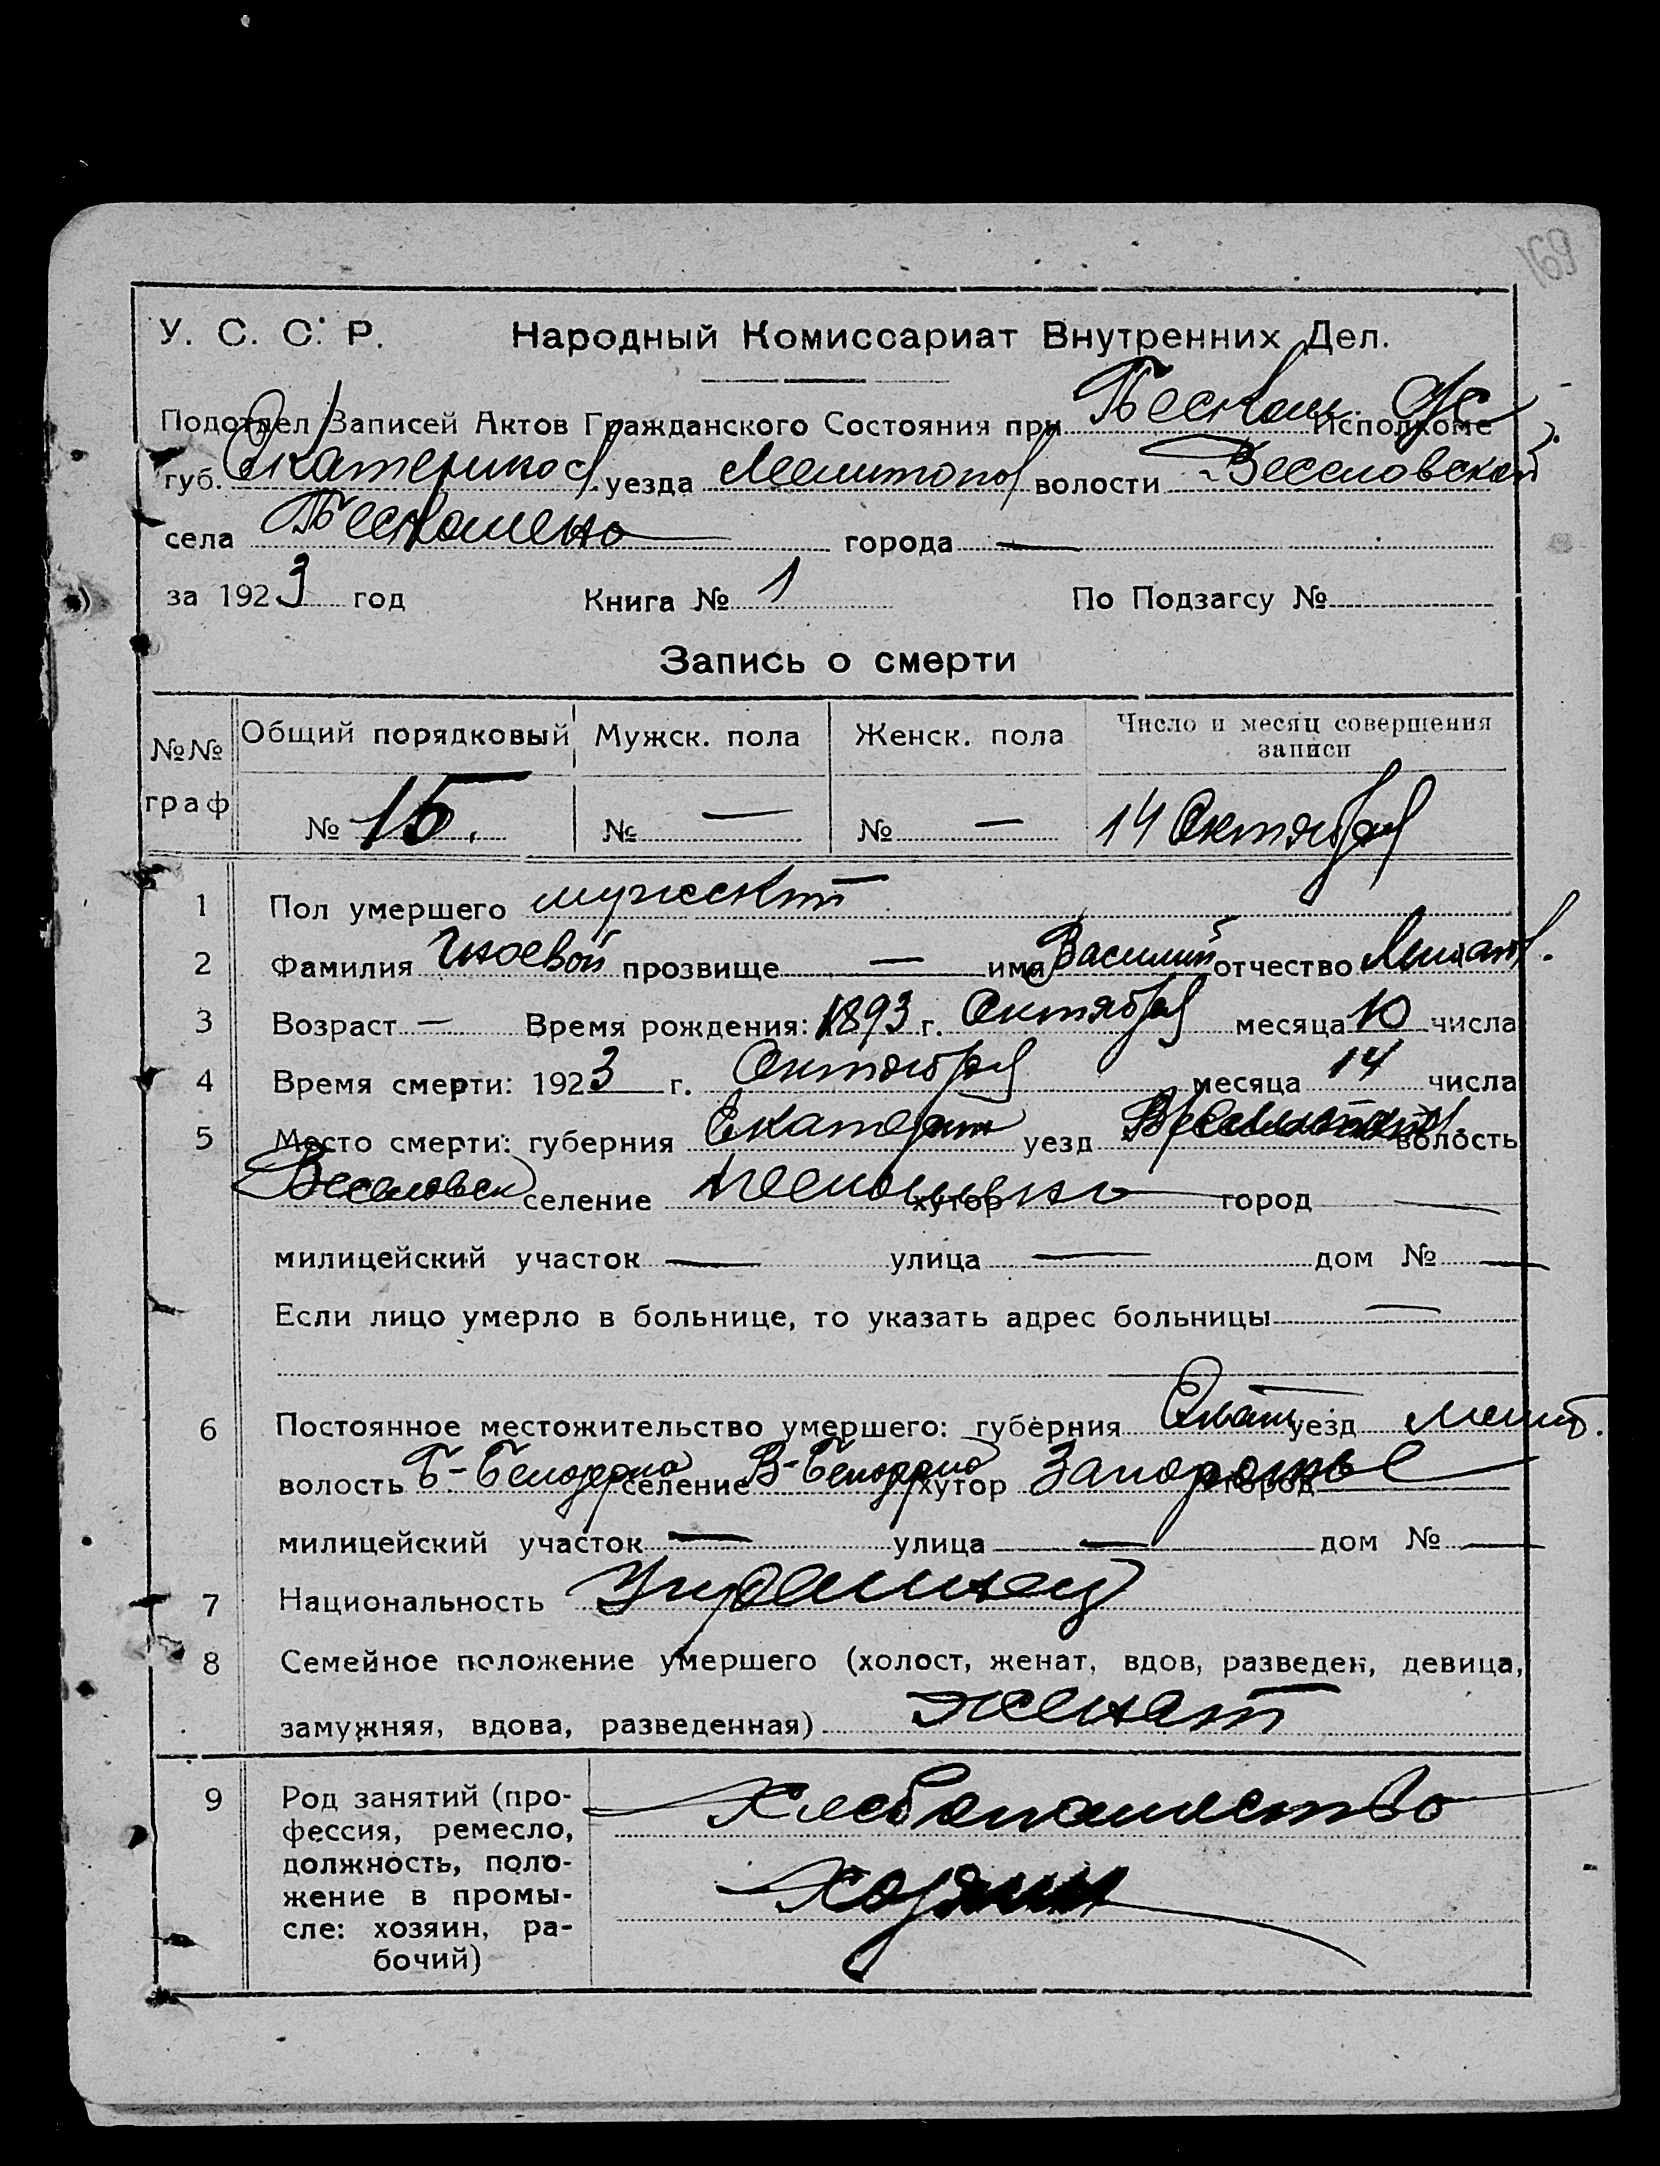 169
У. С. С. Р. Народный Комиссариат Внутренних Дел.
Подотдел Записей Актов Гражданского Состояния при Исполкоме
губ. Екатеринос уезда Мелитопол волости Веселовской
села города —
за 1923 год Книга № 1 По Подзагсу №
Запись о смерти
№№ граф Общий порядковый Мужск. пола Женск. пола Число и месяц совершения записи
№ 15. № — № — 14 Октября
1 Пол умершего мужской
2 Фамилия Гноевой прозвище — имя Василий отчество
3 Возраст — Время рождения: 1893 г. Октября месяца 10 числа
4 Время смерти: 1923 г. Октября месяца 14 числа
5 Место смерти: губерния Екатерин уезд волость
Веселовск селение хутор город —
милицейский участок — улица — дом № —
Если лицо умерло в больнице, то указать адрес больницы —
6 Постоянное местожительство умершего: губерния Екат уезд Мелит.
волость Б-Белозерка селение В-Белозерка хутор Запорожье город
милицейский участок — улица — дом № —
7 Национальность Украинец
8 Семейное положение умершего (холост, женат, вдов, разведен, девица,
замужняя, вдова, разведенная) женат
9 Род занятий (про-
фессия, ремесло,
должность, поло-
жение в промы-
сле: хозяин, ра-
бочий)
Хлебопашество
Хозяин